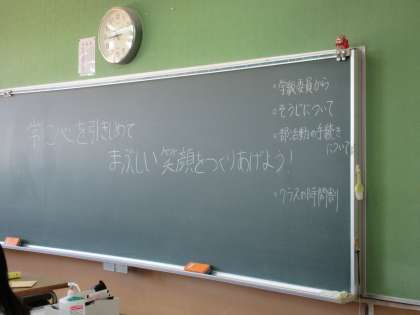 常に心を引きしめて
まぶしい笑顔をつくりあげよう!
・学級委員から
・そうじについて
・部活動の手続き
について
・クラスの時間割